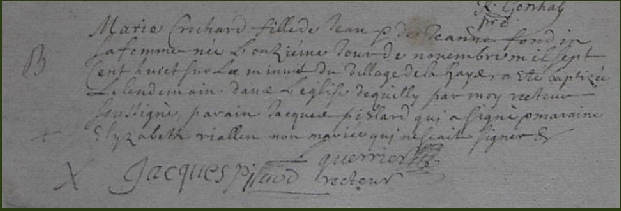 Marie Crochard fille de Jean p et de Jeanne
sa femme née L'onzieme Jour de novembre mil sept
cent huret sur Les minuit du village de la haye a ete baptizée
B
Le lendemain dans L'eglise de quilly par moy recteur
soussigné, parain Jacques pissard qui a signé maraine
Elyzabeth viallen non mariée qui ne scait signer &
X Jacques pissard guerrier
recteur